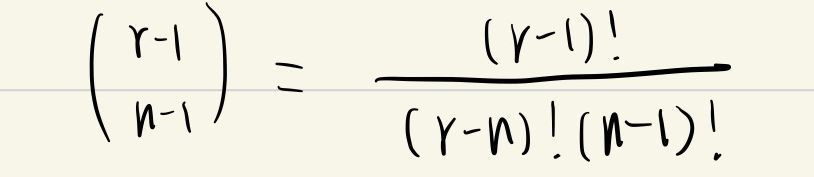 \binom{r-1}{n-1} = \frac{(r-1)!}{(r-n)!(n-1)!}